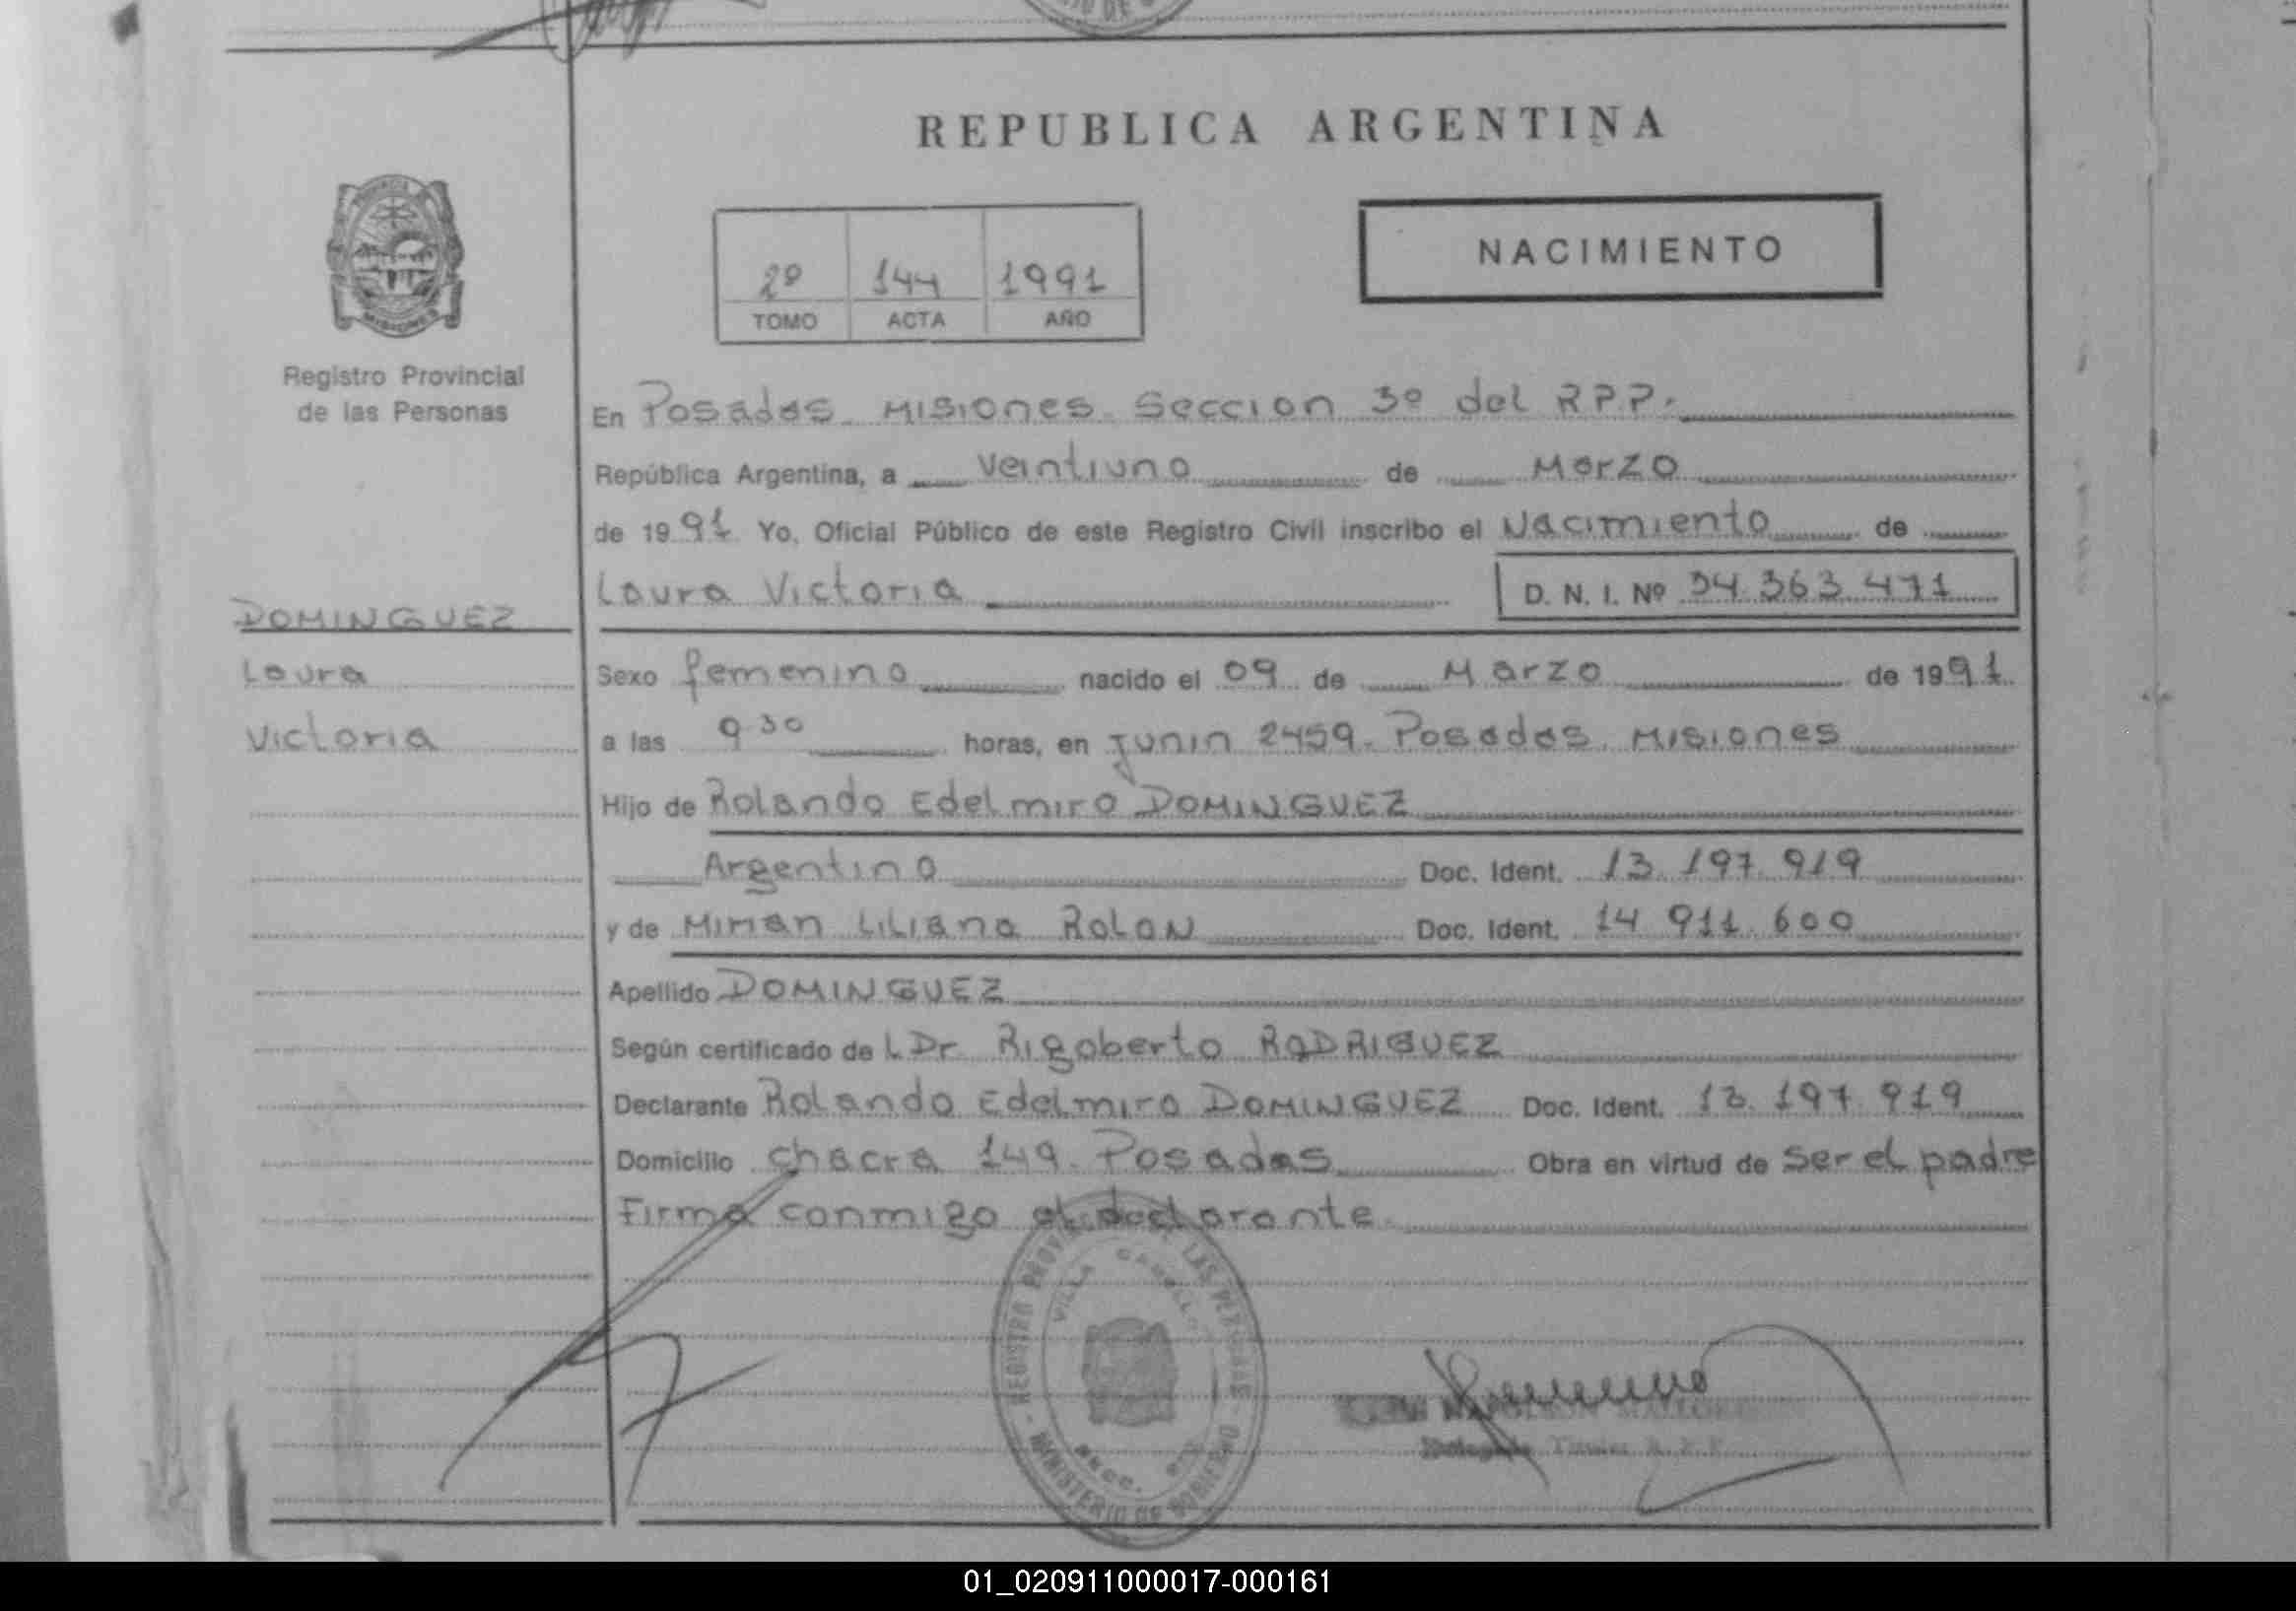 REPUBLICA ARGENTINA
NACIMIENTO
2º 144 1991
TOMO ACTA AÑO
MISIONES
Registro Provincial
de las Personas
En Posadas. Misiones. Seccion 3º del R.P.P.
República Argentina, a veintiuno de Marzo
de 1991 Yo, Oficial Público de este Registro Civil inscribo el Nacimiento de
Laura Victoria D. N. I. Nº 34.363.471
DOMINGUEZ
Laura
Victoria
Sexo femenino nacido el 09 de Marzo de 1991
a las 9 30 horas, en Junin 2459. Posadas. Misiones
Hijo de Rolando Edelmiro DOMINGUEZ
Argentino Doc. Ident. 13.197.919
y de Mirian Liliana ROLON Doc. Ident. 14.911.600
Apellido DOMINGUEZ
Según certificado de L Dr Rigoberto RODRIGUEZ
Declarante Rolando Edelmiro DOMINGUEZ Doc. Ident. 13.197.919
Domicilio chacra 149. Posadas Obra en virtud de ser el padre
Firma conmigo el declarante
REGISTRO PROV DE LAS PERSONAS
VILLA
SECC.
MINISTERIO DE GOBIERNO
01_020911000017-000161